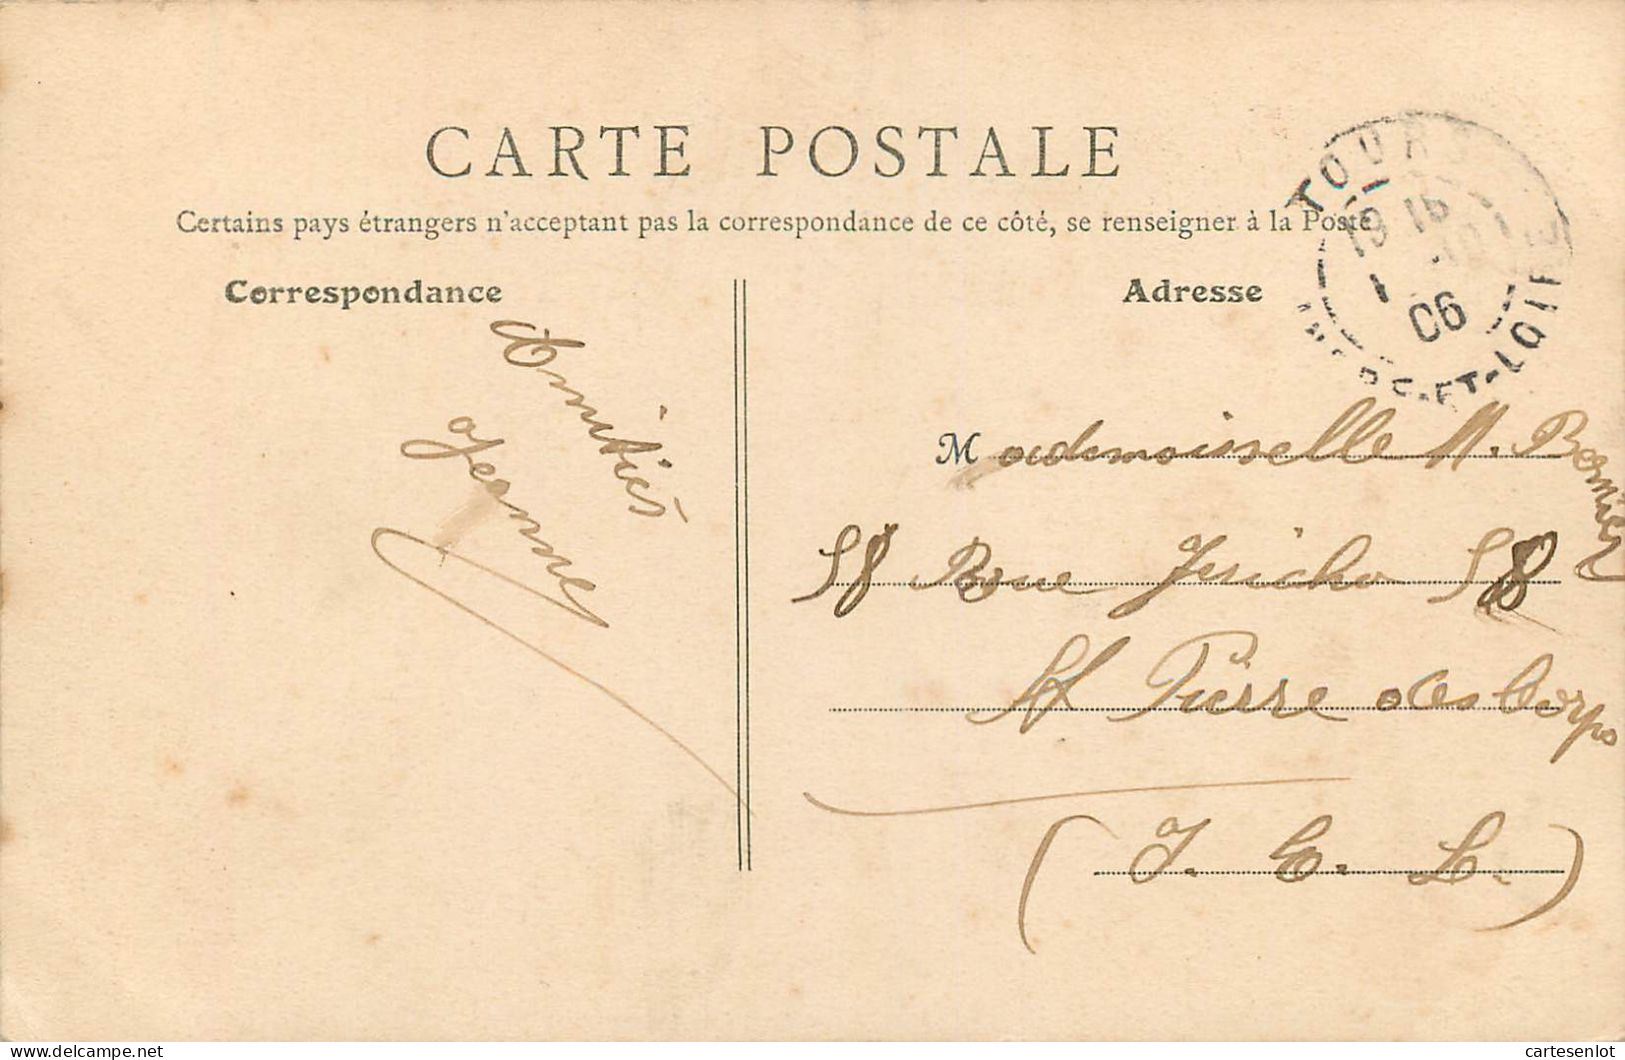 CARTE POSTALE
Certains pays étrangers n'acceptant pas la correspondance de ce côté, se renseigner à la Poste
Correspondance
Adresse
TOURS
19 15
1
06
INDRE-ET-LOIRE
Amitiés
Jeanne
Mademoiselle M. Bernier
58 Rue Jericho 58
St Pierre des Corps
(I. E. L.)
cartesenlot